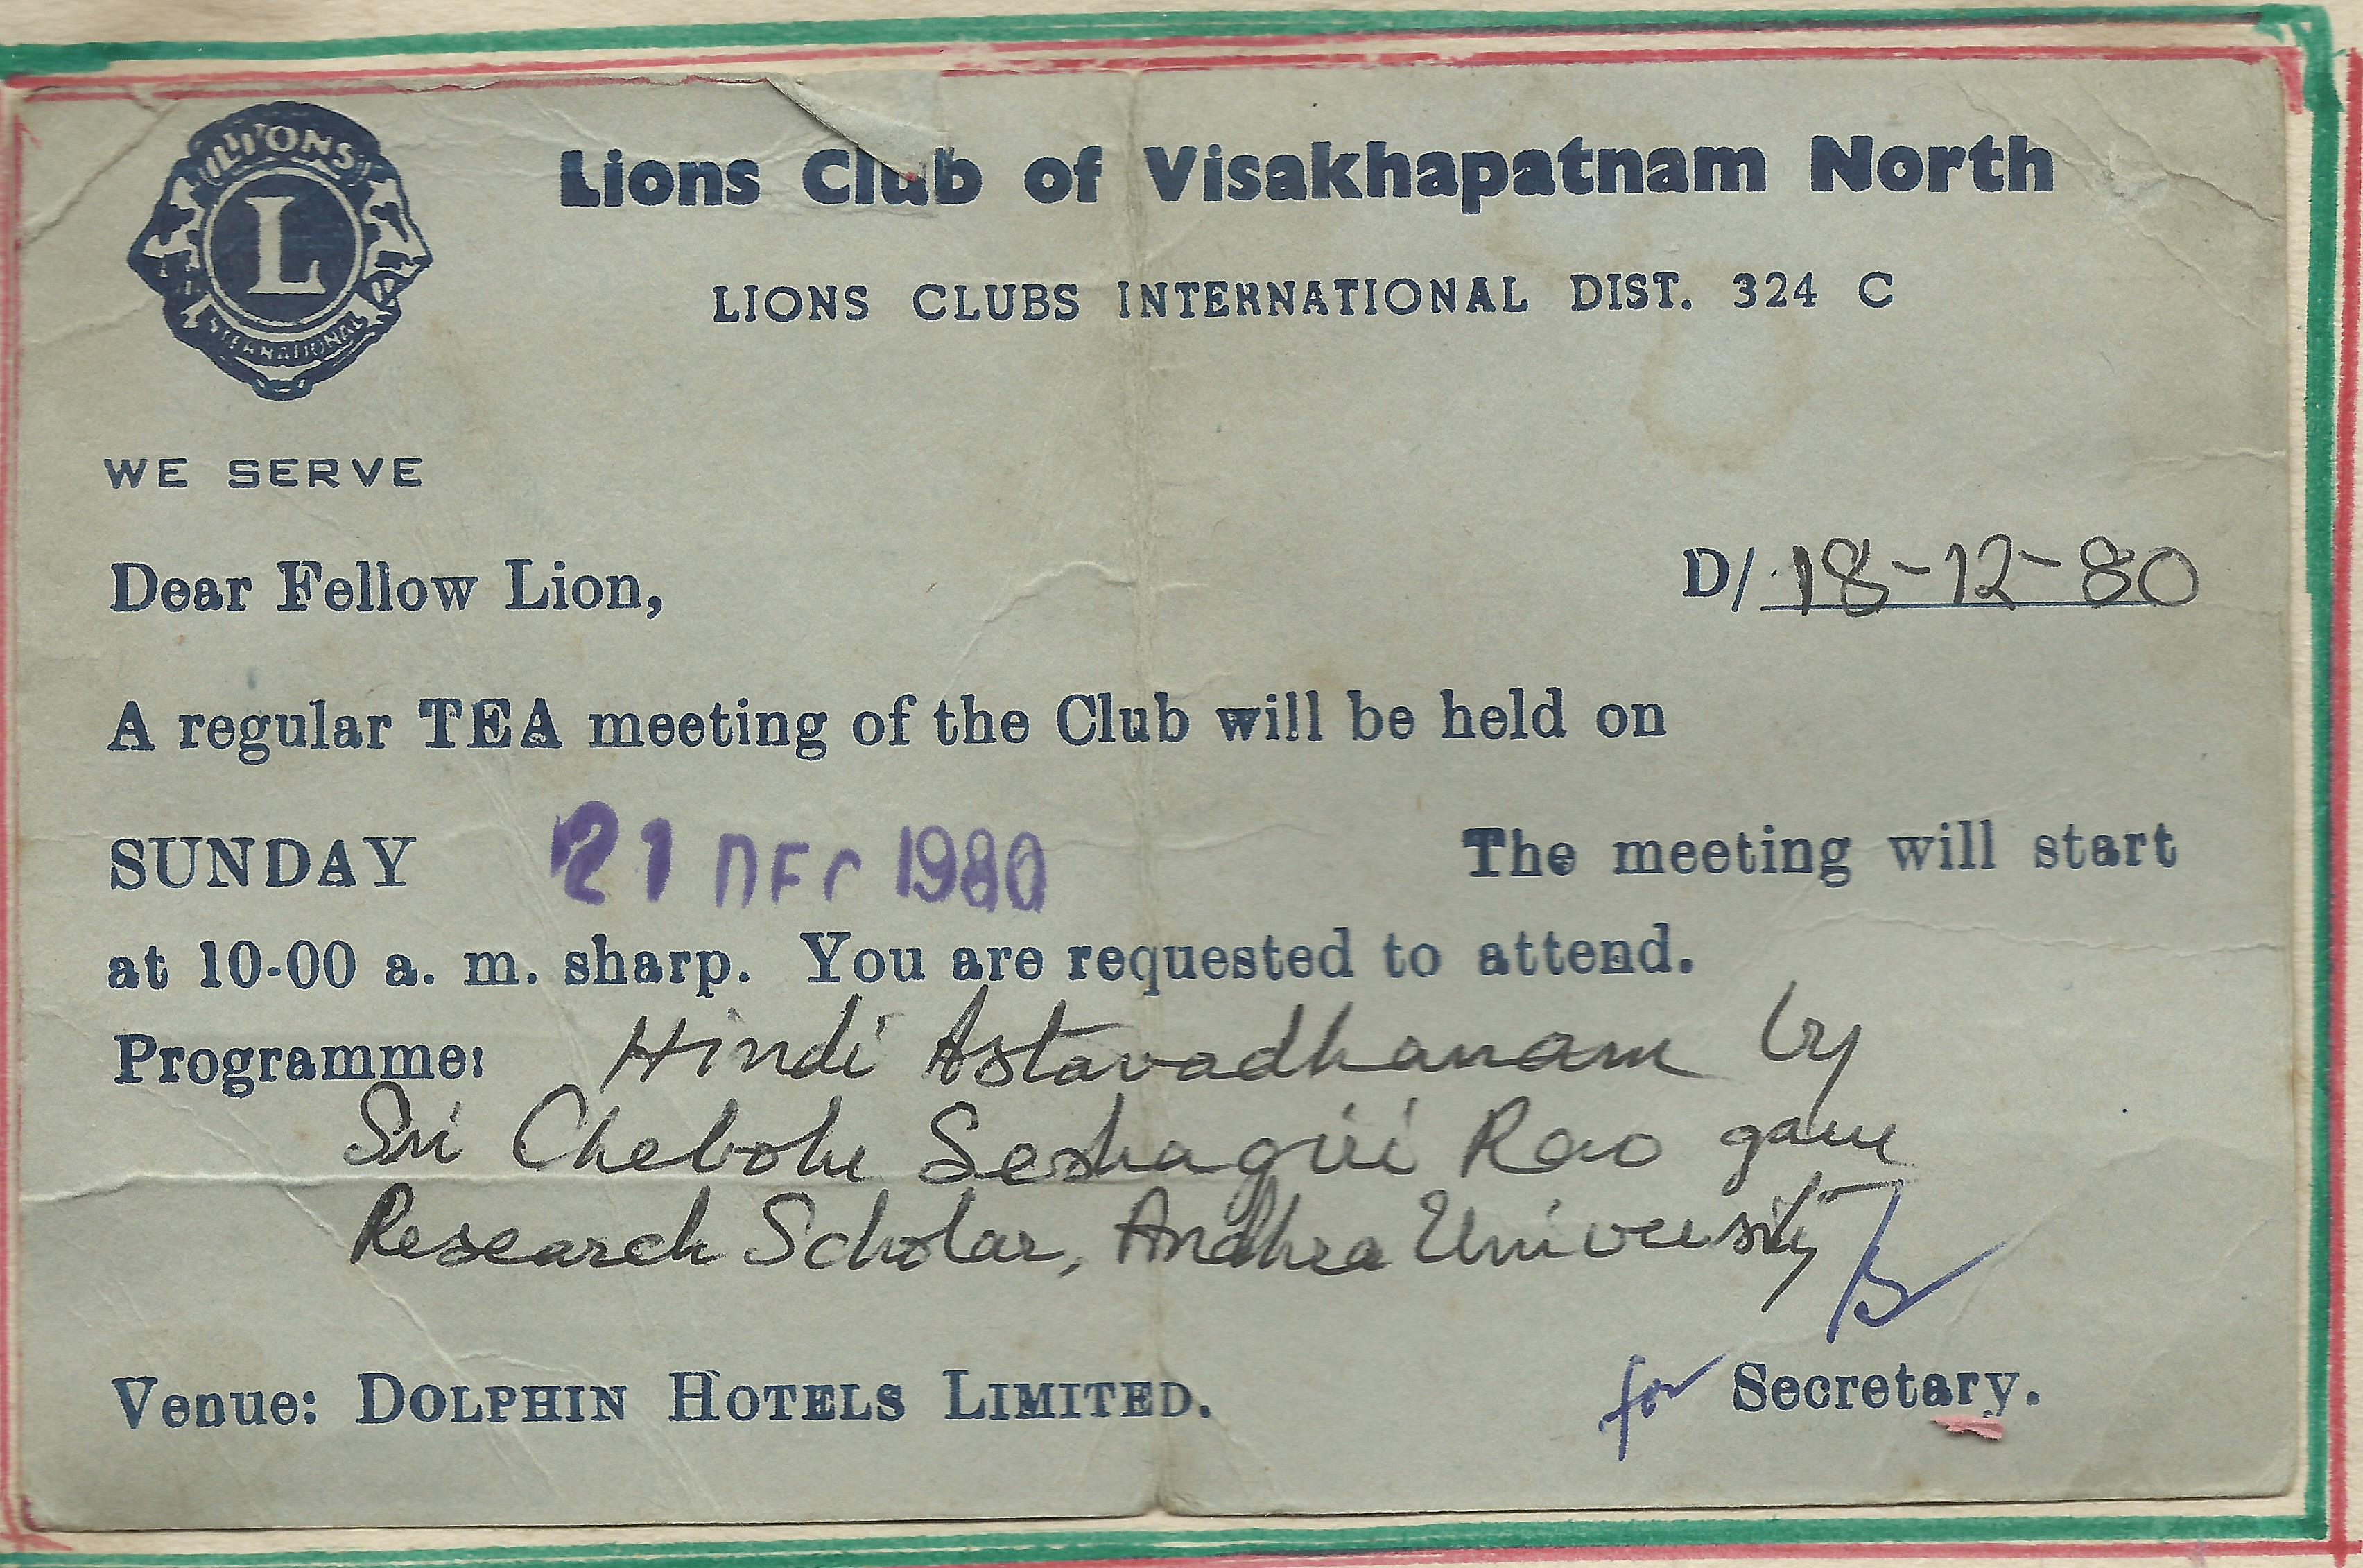 LIONS
L
INTERNATIONAL
Lions Club of Visakhapatnam North
LIONS CLUBS INTERNATIONAL DIST. 324 C
WE SERVE
Dear Fellow Lion,
D/ 18-12-80
A regular TEA meeting of the Club will be held on
SUNDAY 21 DEC 1980 The meeting will start
at 10-00 a. m. sharp. You are requested to attend.
Programme: Hindi Astavadhanam by
Sri Chebolu Seshagiri Rao garu
Research Scholar, Andhra University
Venue: DOLPHIN HOTELS LIMITED.
for Secretary.